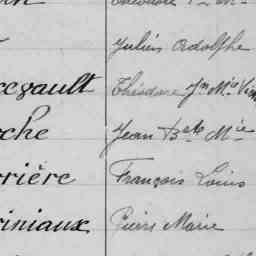 Julien Adolphe
Théodore Jn Mie
che Jean Bte Mie
rière François Louis
iniaux Pierre Marie